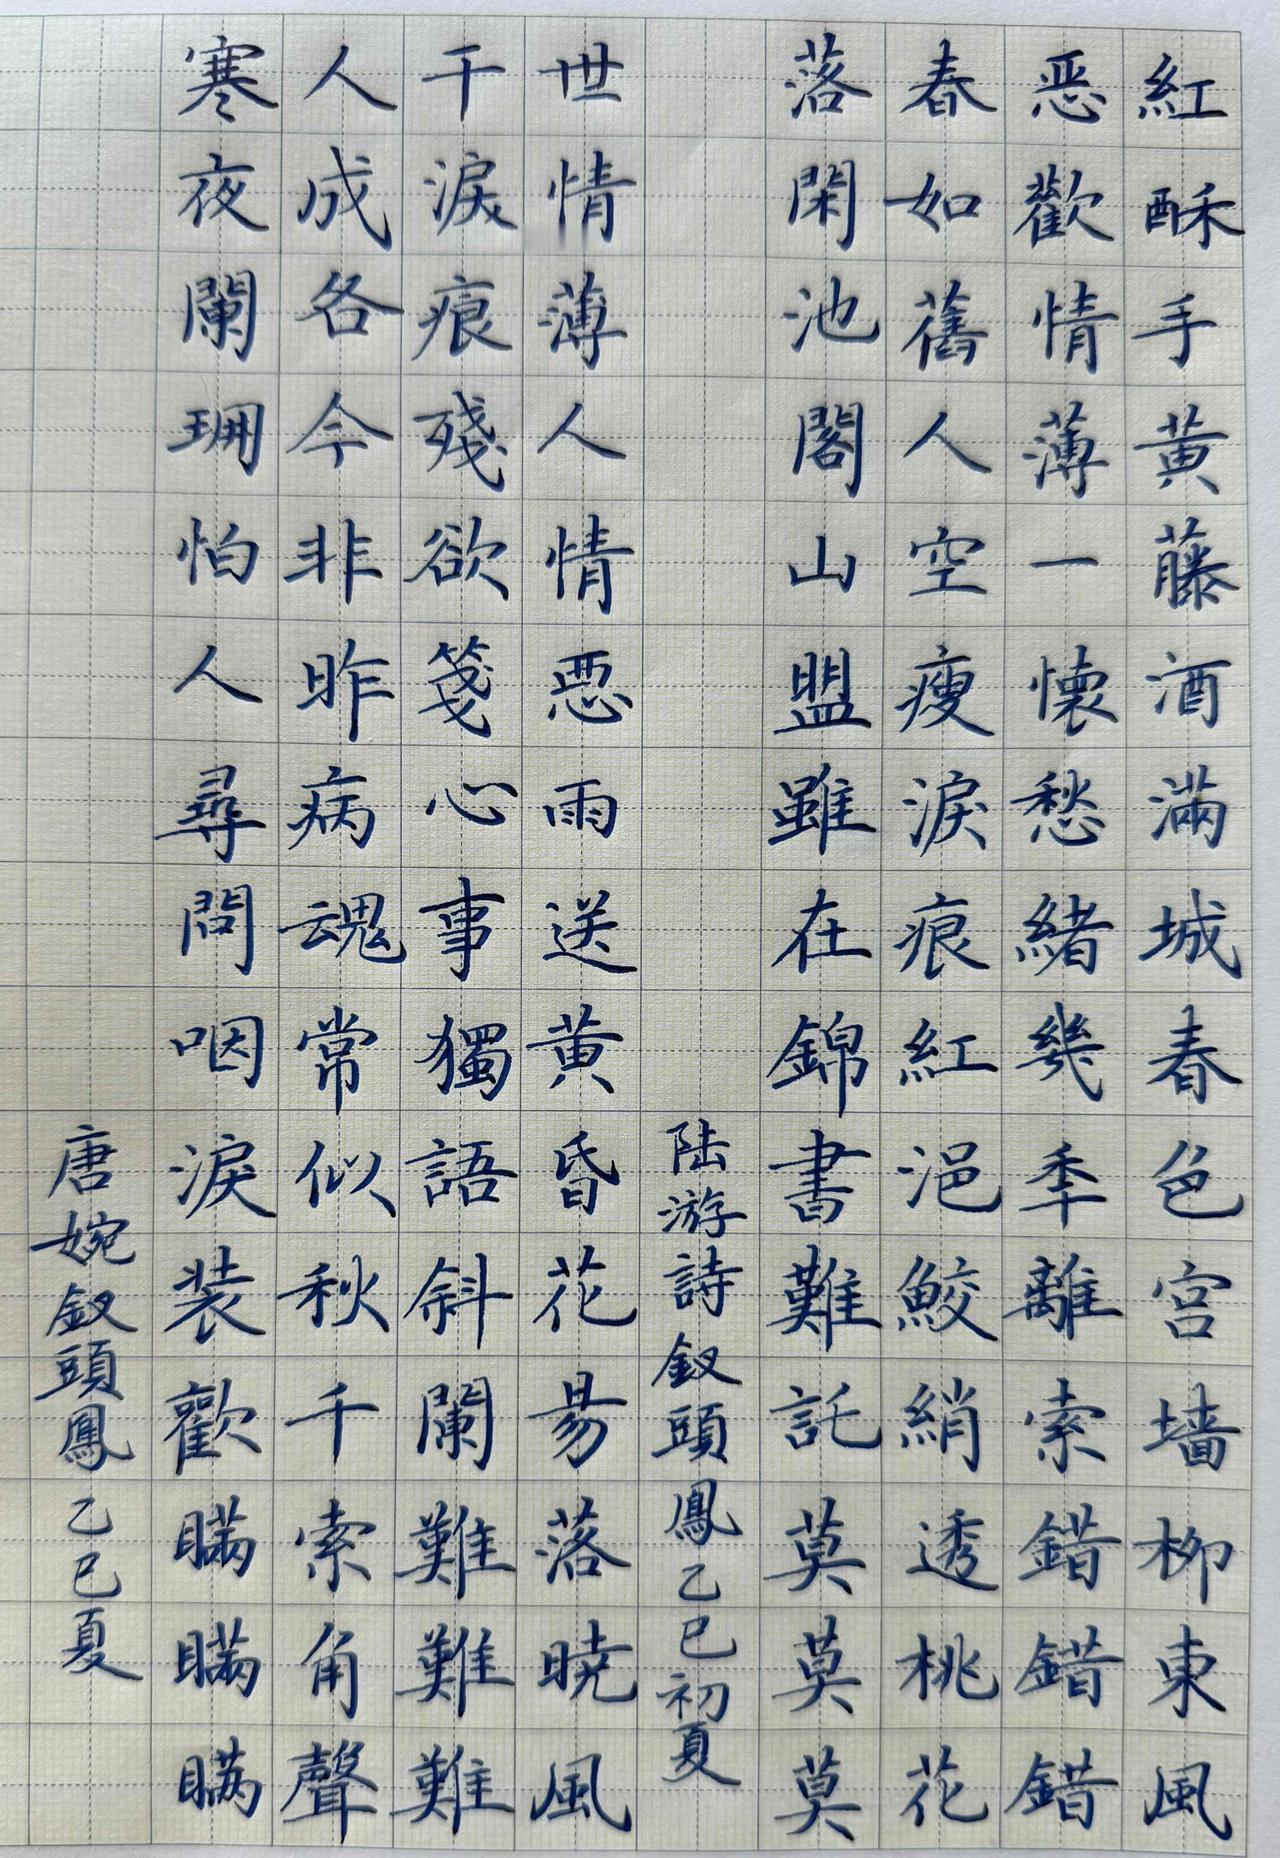 紅酥手黃藤酒滿城春色宮墻柳東風
恶歡情薄一懷愁緒幾秊離索錯錯錯
春如舊人空瘦淚痕紅浥鮫綃透桃花
落閑池閣山盟雖在錦書難託莫莫莫
陆游詩釵頭鳳乙巳初夏
世情薄人情惡雨送黃昏花易落曉風
干淚痕殘欲箋心事獨語斜闌難難難
人成各今非昨病魂常似秋千索角聲
寒夜闌珊怕人尋問咽淚装歡瞞瞞瞞
唐婉釵頭鳳乙巳夏